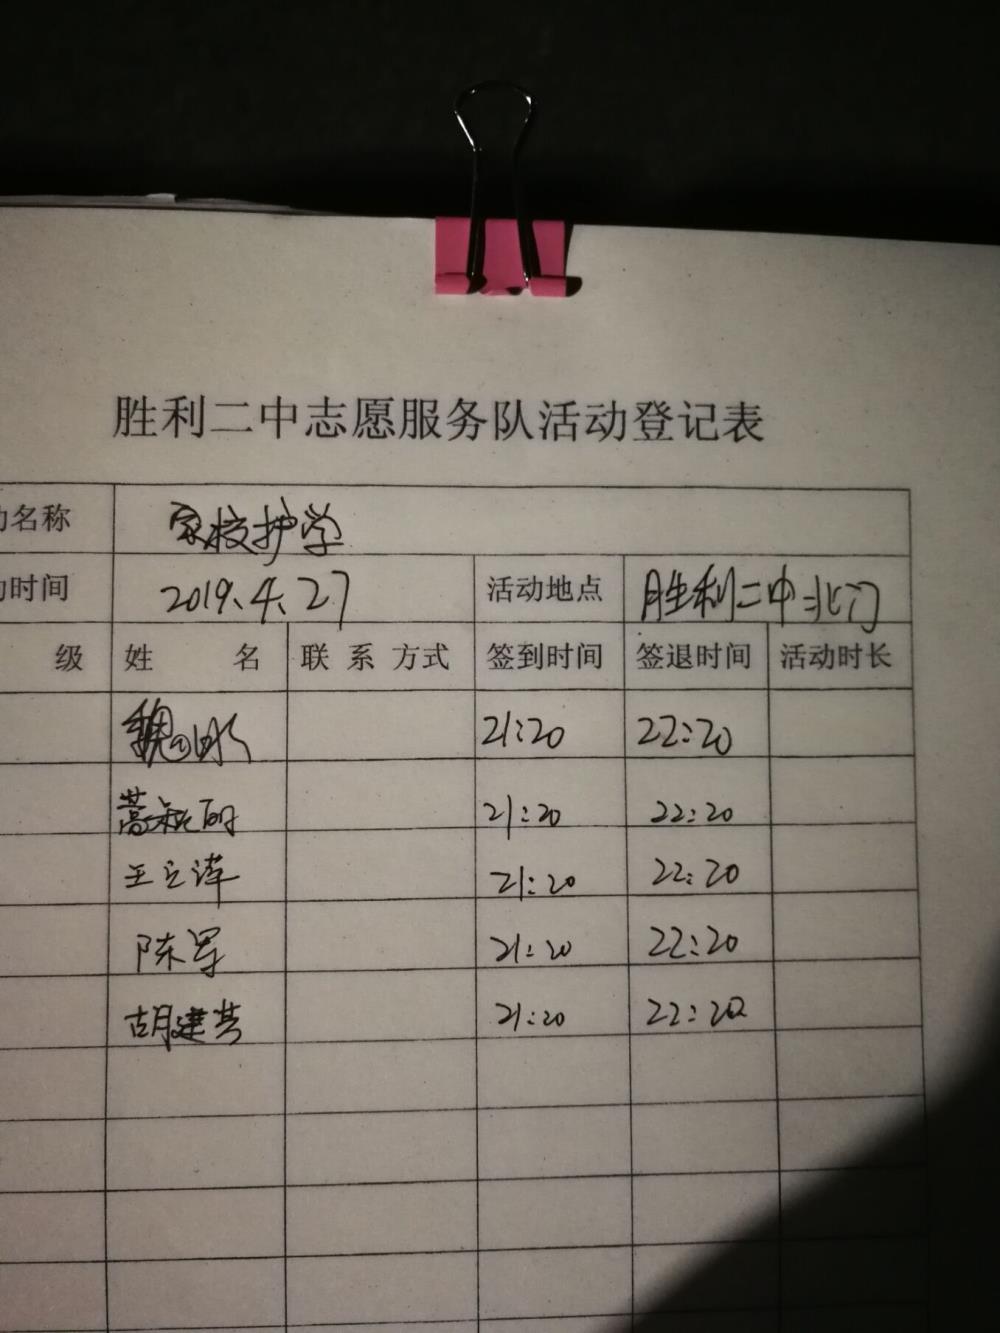 胜利二中志愿服务队活动登记表
名称 家校护学
时间 2019.4.27 活动地点 胜利二中北门
级 姓 名 联 系 方式 签到时间 签退时间 活动时长
21:20 22:20
21:20 22:20
王立 21:20 22:20
陈军 21:20 22:20
胡建芳 21:20 22:20